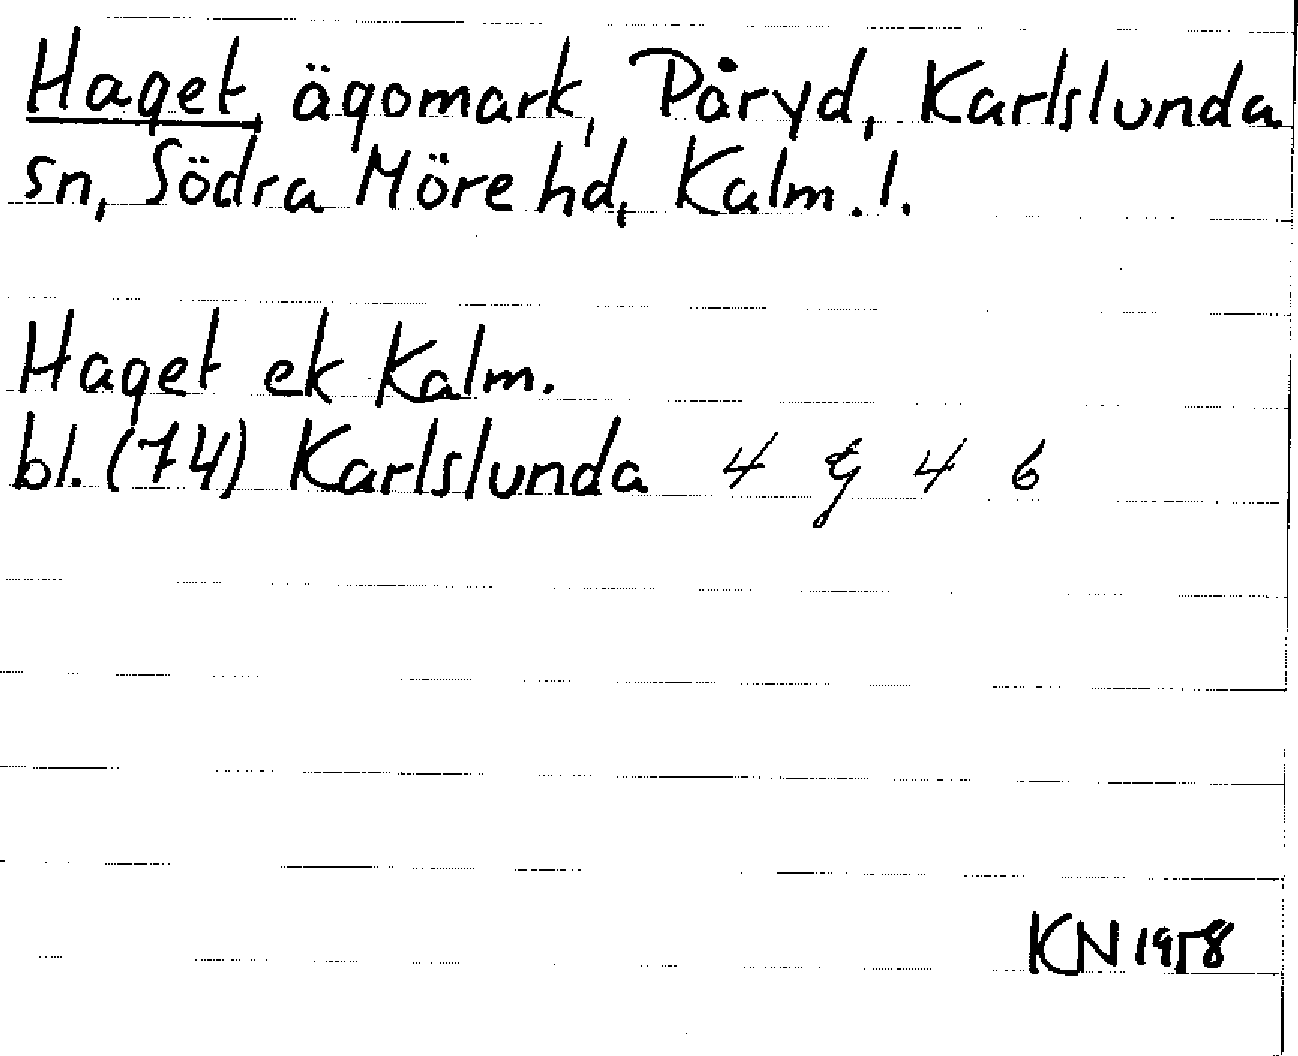 Haget, ägomark, Påryd, Karlslunda
sn, Södra Möre hd, Kalm. l.
Haget ek Kalm.
bl. (74) Karlslunda 4 g 4 6
KN 1958